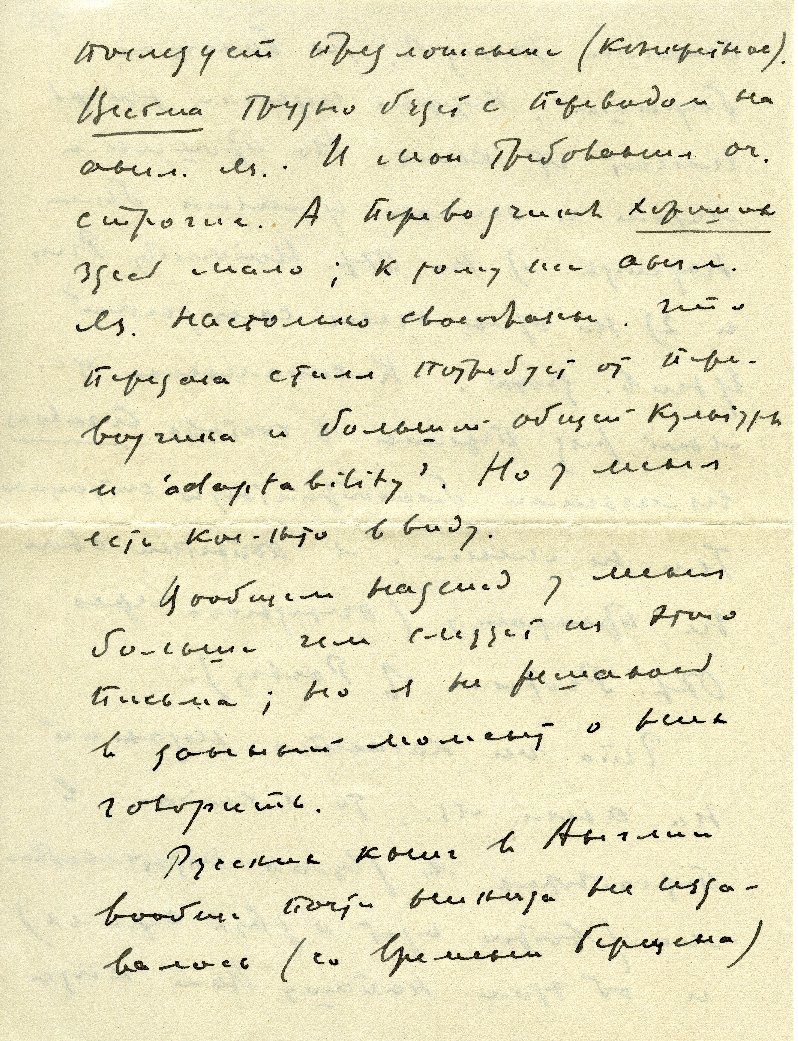 последует предложение (конкретное).
Весьма трудно будет с переводом на
англ. яз.. И мои требования оч.
строгие. А переводчиков хороших
здесь мало; к тому же англ.
яз. настолько своеобразен, что
передача стиля потребует от пере-
водчика и большой общей культуры
и 'adaptability'. Но у меня
есть кое-кто в виду.
Вообщем надежд у меня
больше чем следует из этого
письма; но я не решаюсь
в данный момент о них
говорить.
Русских книг в Англии
вообще почти никогда не изда-
валось (со времени Герцена)